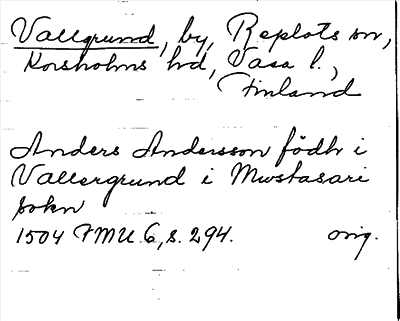 Vallgrund, by, Replots sn,
Korsholms hd, Vasa l.,
Finland
Anders Andersson födh i
Vallergrund i Mwstasari
sokn
1504 FMU 6, s. 294. orig.